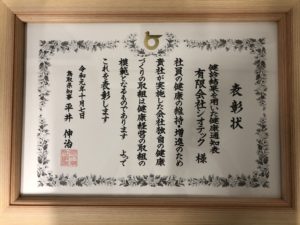 表彰状
健診結果を用いた健康通知表
有限会社シオテック 様
社員の健康の維持・増進のため
貴社が実施した会社独自の健康
づくりの取組は健康経営の取組の
模範となるものであります よって
これを表彰します
令和元年十月七日
鳥取県知事 平井 伸治